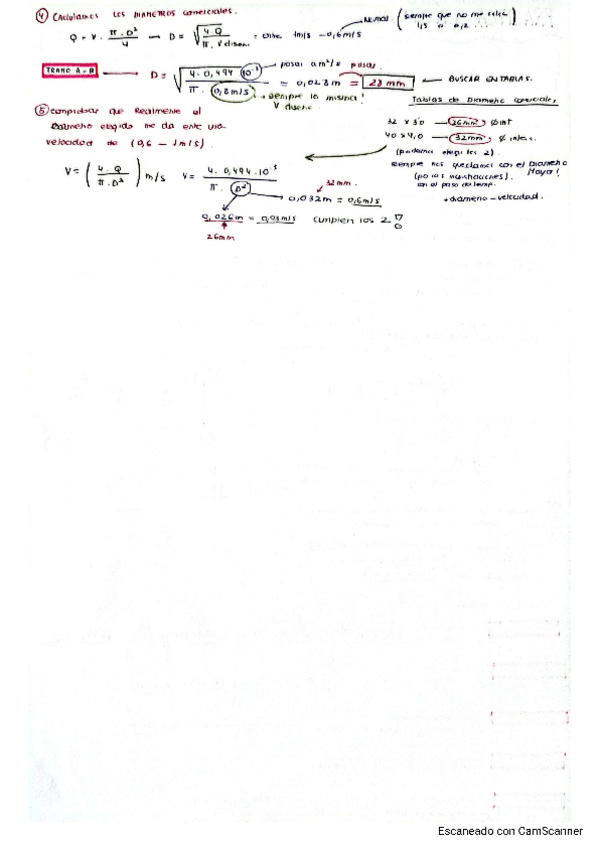 ④ CALCULAMOS LOS DIAMETROS COMERCIALES.
NORMAL. (siempre que no me salga 1,5 o 0,2
Q = V · π·D² / 4 → D = √(4·Q / π·V diseño) = entre 1m/s - 0,6m/s
TRAMO A-B → D = √(4·0,494·10⁻³ / π·0,8m/s) = 0,028m = 28 mm ← BUSCAR EN TABLAS.
pasar a m³/s pasar
siempre la misma! V diseño
Tablas de Diametro comerciales
32 x 3,0 — 26mm, ∅ int
40 x 4,0 — 32mm, ∅ inter.
(podemos elegir los 2).
siempre nos quedamos con el Diametro Mayor!
(por las incrustaciones).
con el paso de temp.
+ diametro – velocidad.
⑤ comprobar que Realmente el
Diametro elegido me da entre una
velocidad de (0,6 – 1m/s).
V = (4·Q / π·D²) m/s V = 4·0,494·10⁻³ / π·D²
32mm.
0,032m = 0,6m/s
0,026m = 0,93m/s cumplen los 2
26mm
Escaneado con CamScanner